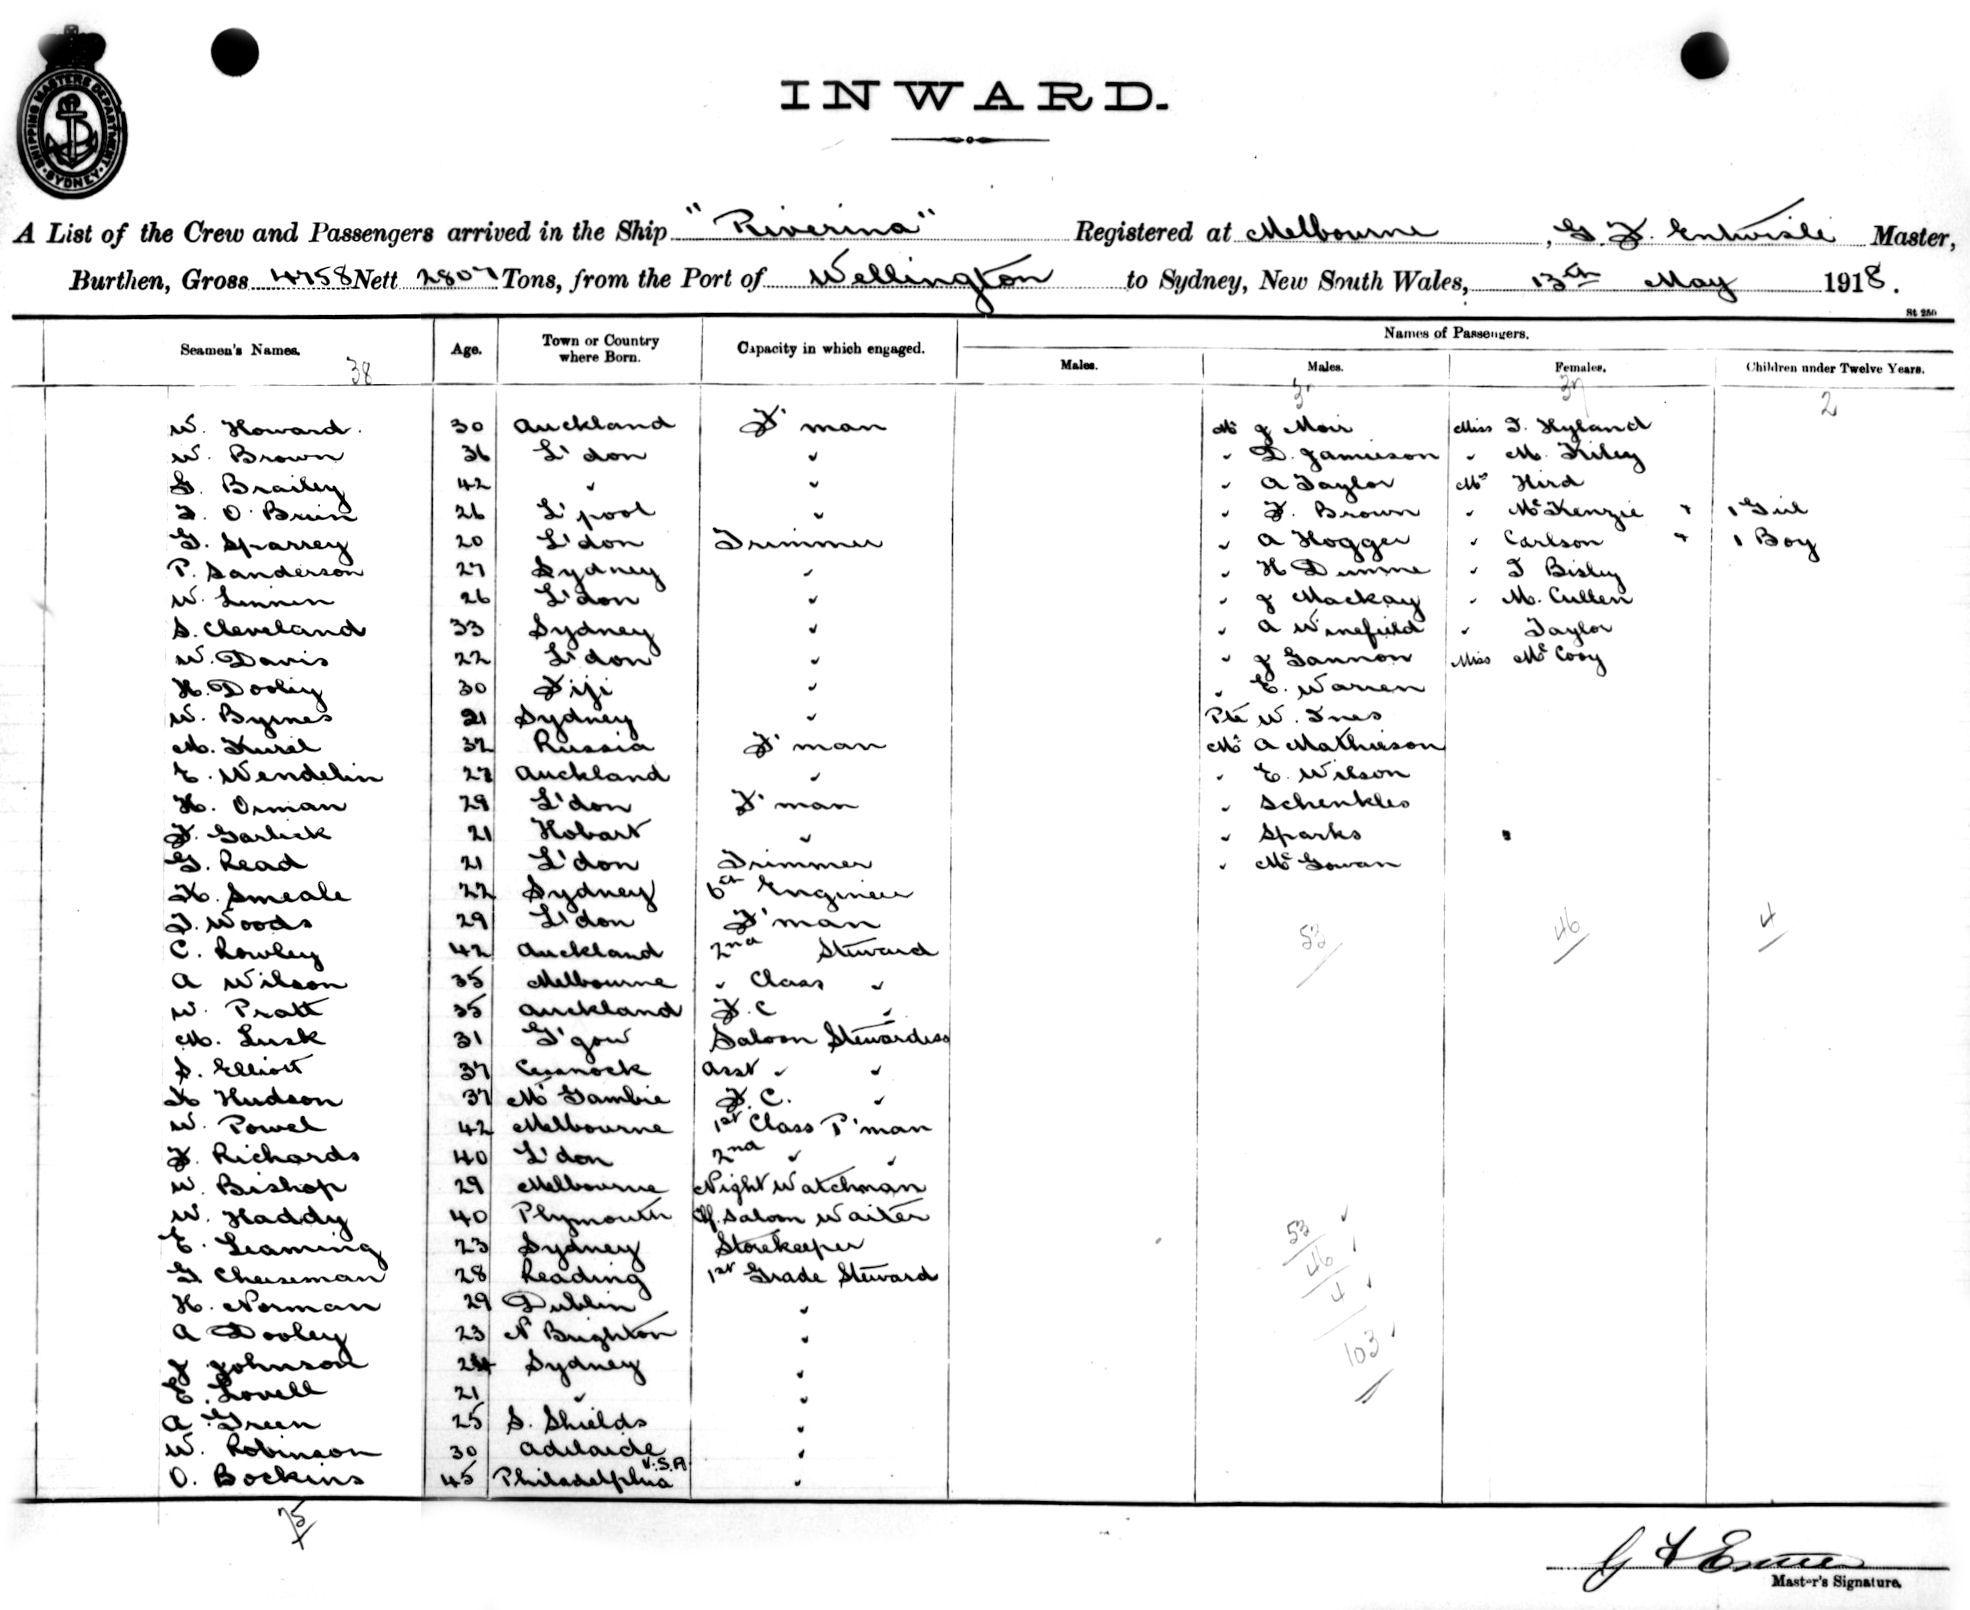 SHIPPING MASTERS DEPARTMENT
SYDNEY
INWARD.
A List of the Crew and Passengers arrived in the Ship "Riverina" Registered at Melbourne, G. F. Entwisle Master,
Burthen, Gross 4758 Nett 2807 Tons, from the Port of Wellington to Sydney, New South Wales, 13th May 1918.
St 250
Seamen's Names. Age. Town or Country where Born. Capacity in which engaged. Names of Passengers.
Males. Males. Females. Children under Twelve Years.
38 37 2
W. Howard. 30 Auckland F'man Mr J Moir Miss T. Hyland
W. Brown 36 L'don " " D. Jamieson " M. Kiley
G. Brailey 42 " " " A Taylor Mrs Hird
F. O'Brien 26 L'pool " " F. Brown " McKenzie + 1 Girl
G. Sparrey 20 L'don Trimmer " A Hogger " Carlson + 1 Boy
P. Sanderson 27 Sydney " " H Dunne " T Bisley
W. Linnen 26 L'don " " J Mackay " M. Cullen
S. Cleveland 33 Sydney " " A Winefield " Taylor
W. Davis 22 L'don " " J Gannon Miss McCooy
H. Dooley 30 Fiji " " E. Warren
W. Byrnes 21 Sydney " Pte W. Ines
M. Kurel 32 Russia F'man Mr A Mathieson
E. Wendelin 27 Auckland " " E. Wilson
H. Orman 29 L'don F'man " Schenkles
F. Garlick 21 Hobart " " Sparks
G. Read 21 L'don Trimmer " McGowan
H. Smeale 22 Sydney 6th Engineer
T. Woods 29 L'don F'man 53 46 4
C. Rowley 42 Auckland 2nd Steward
A Wilson 35 Melbourne " Class "
W. Pratt 35 Auckland F.C "
M. Lusk 31 G'gow Saloon Stewardess
S. Elliott 37 Cessnock Asst " "
K Hudson 37 Mt Gambie F.C. "
W. Powel 42 Melbourne 1st Class P'man
F. Richards 40 L'don 2nd " "
W. Bishop 29 Melbourne Night Watchman
W. Haddy 40 Plymouth Hd. Saloon Waiter 53
E. Leaming 23 Sydney Storekeeper 46
G Cheeseman 28 Reading 1st Grade Steward 4
H. Norman 29 Dublin "
A Dooley 23 N Brighton " 103
J Johnson 24 Sydney "
E. Lovell 21 " "
A Green 25 S. Shields "
W. Robinson 30 Adelaide "
O. Bockins 45 Philadelphia U.S.A. "
75
Master's Signature.